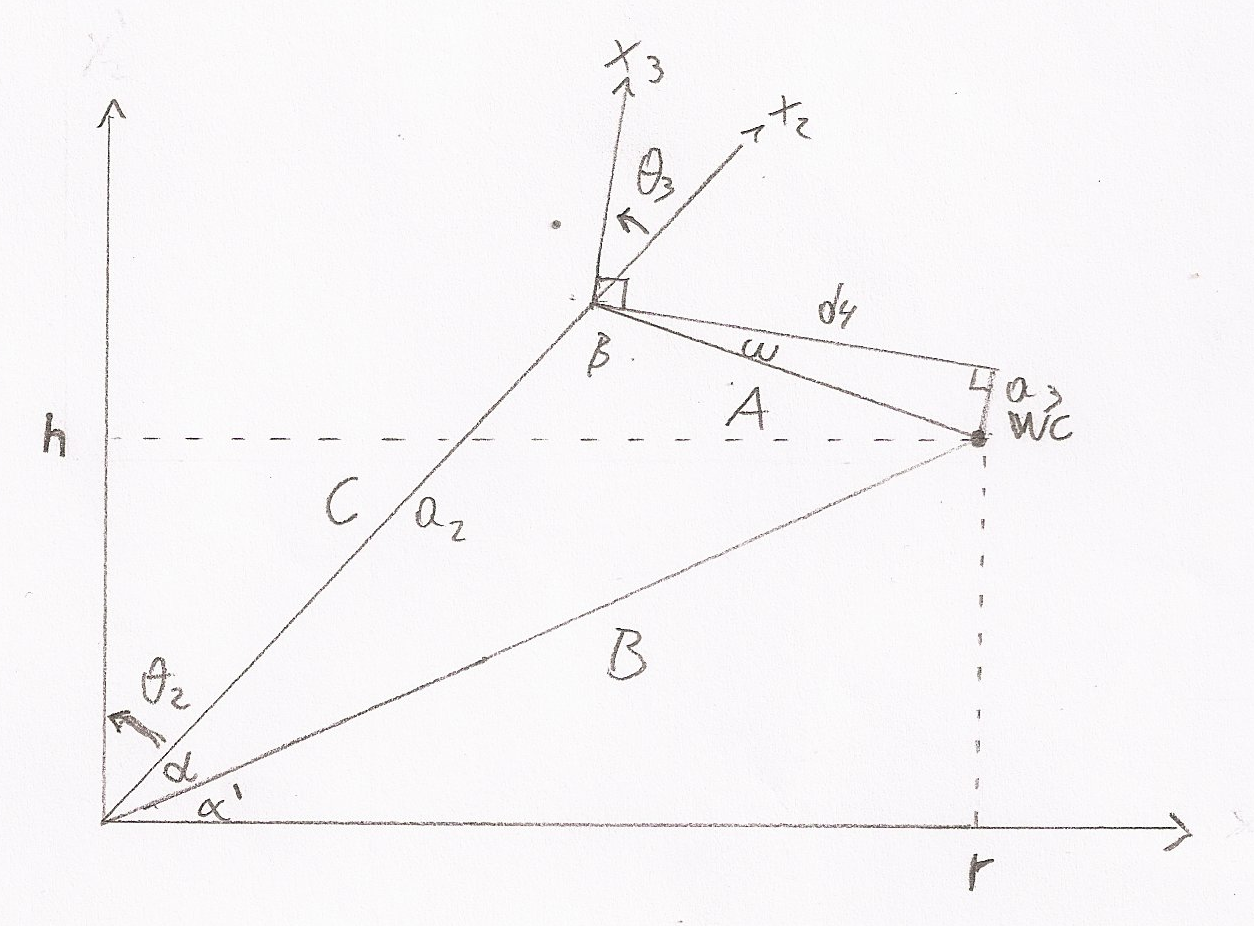 X3
X2
θ3
d4
β
ω
a3
A
WC
h
C
a2
B
θ2
α
α'
r